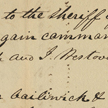 to the Sheriff o
gain comman
and J. Westov
bailiwick &